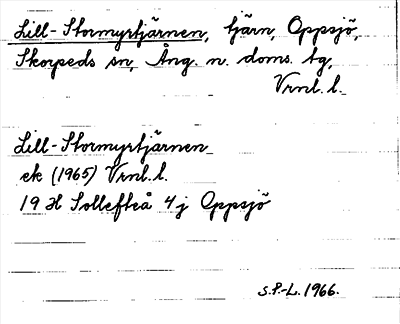 Lill-Stormyrtjärnen, tjärn, Oppsjö,
Skorpeds sn, Ång. n. doms. tg,
Vrnl. l.
Lill-Stormyrtjärnen
ek (1965) Vrnl. l.
19 H Sollefteå 4 j Oppsjö
S.P.-L. 1966.